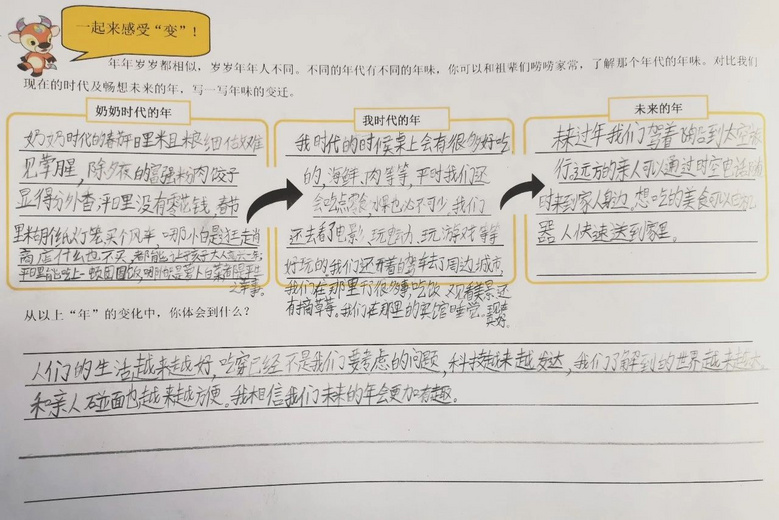 一起来感受“变”！
年年岁岁都相似，岁岁年年人不同。不同的年代有不同的年味，你可以和祖辈们唠唠家常，了解那个年代的年味。对比我们
现在的时代及畅想未来的年，写一写年味的变迁。
奶奶时代的年
奶奶时代的春节日里米且粮细做难
见荤腥，除夕夜的富强粉肉饺子
显得分外香，平日里没有零花钱，春节
里糊个纸灯笼买个风车，哪怕是逛走肖
商店什么也不买，都能让孩子大人高兴一年；
平日里能吃上一顿团圆饭，哪怕是萝卜白菜都是平生
之幸事。
我时代的年
我时代的时候桌上会有很多好吃
的，海鲜、肉等等，平时我们还
会吃点零食，水果也必不可少，我们
还去看了电影、玩运动、玩游戏等等
好玩的我们还开着自驾车去了周边城市，
我们在那里干很多事，吃饭 又看美景还
有摘草莓等。我们在那里的宾馆睡觉。
真好。
未来的年
未来过年我们驾着飞船到太空旅
行，远方的亲人可以通过时空电话随
时来到家人身边，想吃的美食可以由机
器人快速送到家里。
从以上“年”的变化中，你体会到什么？
人们的生活越来越好，吃穿已经不是我们要考虑的问题，科技越来越发达，我们了解到的世界越来越大，
和亲人碰面也越来越方便。我相信我们未来的年会更加有趣。